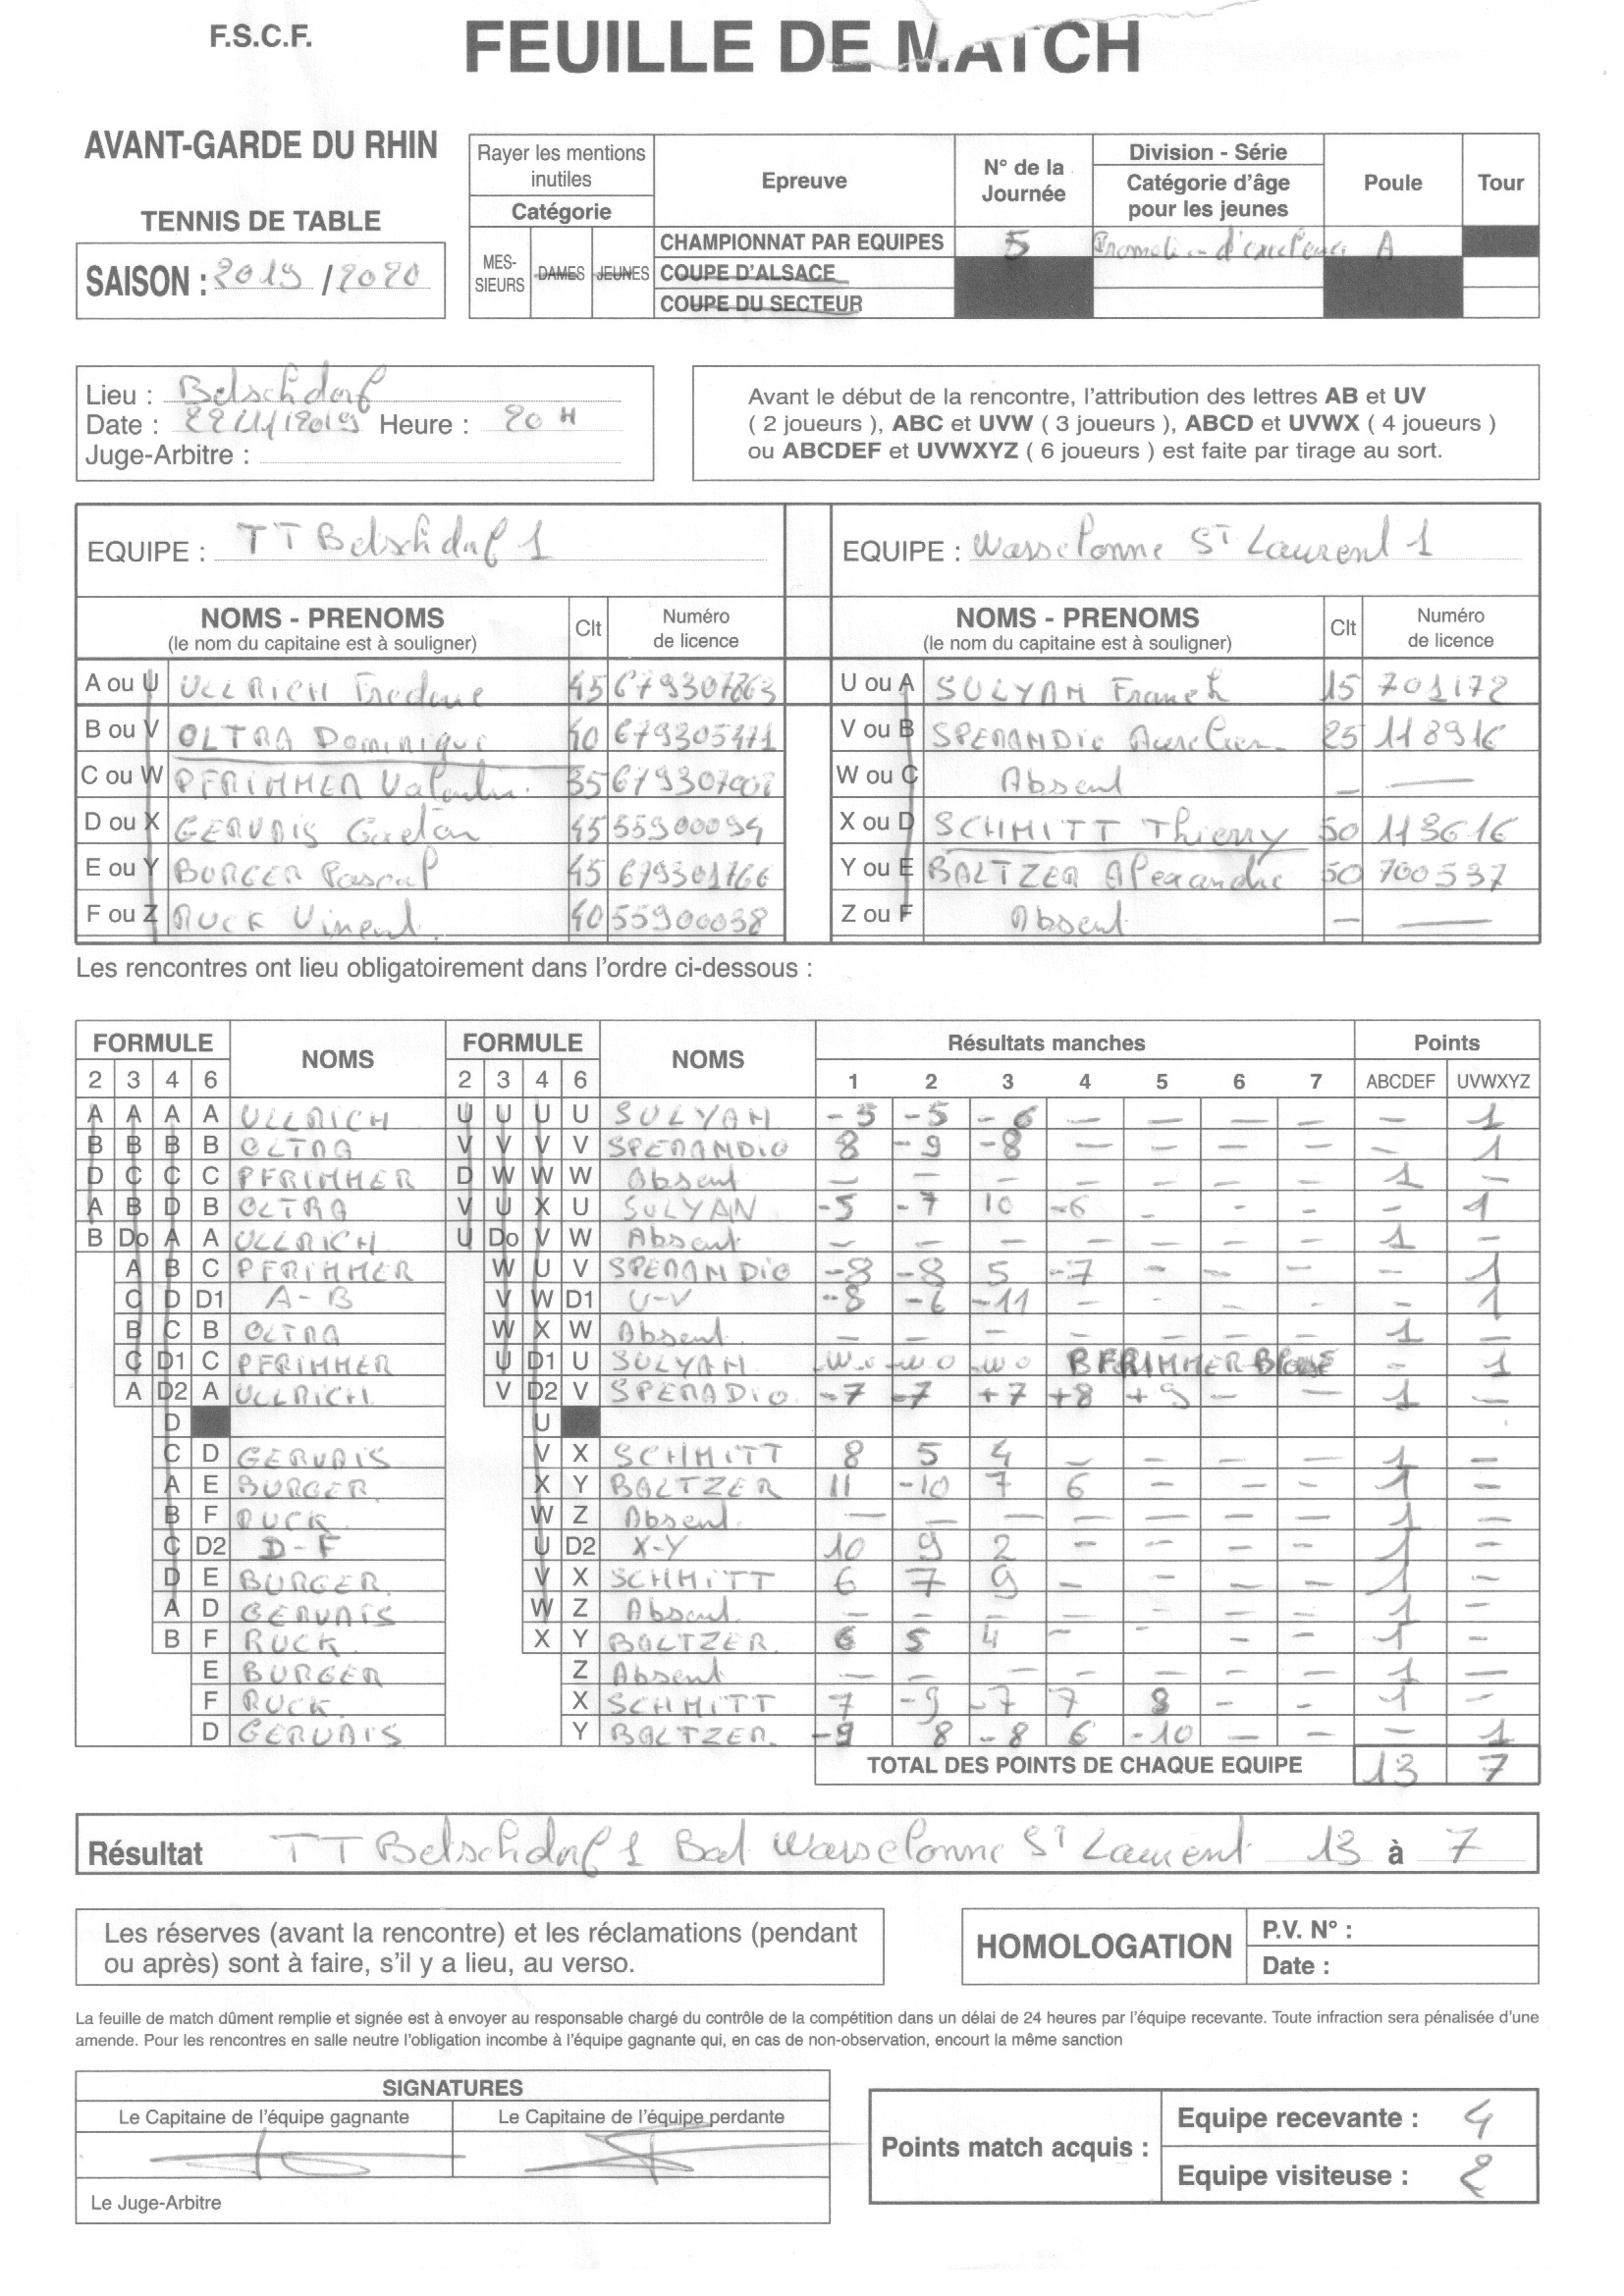 F.S.C.F.
FEUILLE DE MATCH
AVANT-GARDE DU RHIN
TENNIS DE TABLE
SAISON : 2019 / 2020
Rayer les mentions inutiles
Catégorie
Epreuve
N° de la Journée
Division - Série
Catégorie d'âge pour les jeunes
Poule
Tour
MES-SIEURS DAMES JEUNES
CHAMPIONNAT PAR EQUIPES 5 Promotion d'excellence A
COUPE D'ALSACE
COUPE DU SECTEUR
Lieu : Betschdorf
Date : 22/11/2019 Heure : 20 H
Juge-Arbitre :
Avant le début de la rencontre, l'attribution des lettres AB et UV
( 2 joueurs ), ABC et UVW ( 3 joueurs ), ABCD et UVWX ( 4 joueurs )
ou ABCDEF et UVWXYZ ( 6 joueurs ) est faite par tirage au sort.
EQUIPE : TT Betschdorf 1 EQUIPE : Wasselonne St Laurent 1
NOMS - PRENOMS Clt Numéro de licence NOMS - PRENOMS Clt Numéro de licence
(le nom du capitaine est à souligner) (le nom du capitaine est à souligner)
A ou U ULLRICH 45 679307863 U ou A SULYAN Franck 15 701172
B ou V OLTRA Dominique 40 679305471 V ou B SPERANDIO Aurelien 25 118916
C ou W PFRIMMER Valentin 35 W ou C Absent — —
D ou X GERVAIS Gaetan 45 55900094 X ou D SCHMITT Thierry 50 113616
E ou Y BURGER Pascal 45 679301766 Y ou E BALTZER Alexandre 50 700537
F ou Z RUCK Vincent 40 55900038 Z ou F Absent — —
Les rencontres ont lieu obligatoirement dans l'ordre ci-dessous :
FORMULE NOMS FORMULE NOMS Résultats manches Points
2 3 4 6 2 3 4 6 1 2 3 4 5 6 7 ABCDEF UVWXYZ
A A A A ULLRICH U U U U SULYAN -5 -5 -6 — — — — — 1
B B B B OLTRA V V V V SPERANDIO 8 -9 -8 — — — — — 1
D C C C PFRIMMER D W W W Absent — — — — — — — 1 —
A B D B OLTRA V U X U SULYAN -5 -7 10 -6 — — — — 1
B Do A A ULLRICH U Do V W Absent — — — — — — — 1 —
A B C PFRIMMER W U V SPERANDIO -8 -8 5 -7 — — — — 1
C D D1 A-B V W D1 U-V -8 -6 -11 — — — — — 1
B C B OLTRA W X W Absent — — — — — — — 1 —
C D1 C PFRIMMER U D1 U SULYAN wo wo wo PFRIMMER — 1
A D2 A ULLRICH V D2 V SPERADIO -7 -7 +7 +8 +9 — — 1 —
D U
C D GERVAIS V X SCHMITT 8 5 4 — — — — 1 —
A E BURGER X Y BALTZER 11 -10 7 6 — — — 1 —
B F RUCK W Z Absent — — — — — — — 1 —
C D2 D-F U D2 X-Y 10 9 2 — — — — 1 —
D E BURGER V X SCHMITT 6 7 9 — — — — 1 —
A D GERVAIS W Z Absent — — — — — — — 1 —
B F RUCK X Y BALTZER 6 5 4 — — — — 1 —
E BURGER Z Absent — — — — — — — 1 —
F RUCK X SCHMITT 7 -9 -7 7 8 — — 1 —
D GERVAIS Y BALTZER -9 8 -8 6 -10 — — — 1
TOTAL DES POINTS DE CHAQUE EQUIPE 13 7
Résultat TT Betschdorf 1 Bat Wasselonne St Laurent 13 à 7
Les réserves (avant la rencontre) et les réclamations (pendant
ou après) sont à faire, s'il y a lieu, au verso.
HOMOLOGATION
P.V. N° :
Date :
La feuille de match dûment remplie et signée est à envoyer au responsable chargé du contrôle de la compétition dans un délai de 24 heures par l'équipe recevante. Toute infraction sera pénalisée d'une
amende. Pour les rencontres en salle neutre l'obligation incombe à l'équipe gagnante qui, en cas de non-observation, encourt la même sanction
SIGNATURES
Le Capitaine de l'équipe gagnante Le Capitaine de l'équipe perdante
Le Juge-Arbitre
Points match acquis :
Equipe recevante : 4
Equipe visiteuse : 2